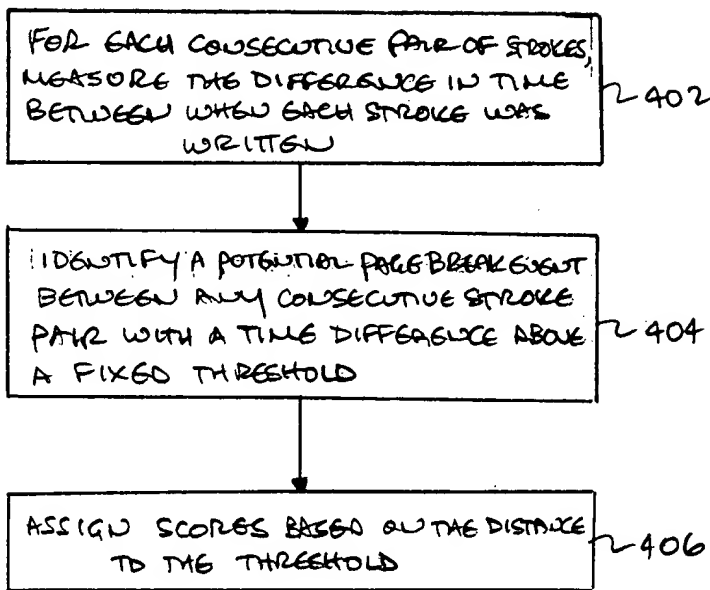 FOR EACH CONSECUTIVE PAIR OF STROKES,
MEASURE THE DIFFERENCE IN TIME
BETWEEN WHEN EACH STROKE WAS
WRITTEN
402
IDENTIFY A POTENTIAL PAGE BREAK EVENT
BETWEEN ANY CONSECUTIVE STROKE
PAIR WITH A TIME DIFFERENCE ABOVE
A FIXED THRESHOLD
404
ASSIGN SCORES BASED ON THE DISTANCE
TO THE THRESHOLD
406